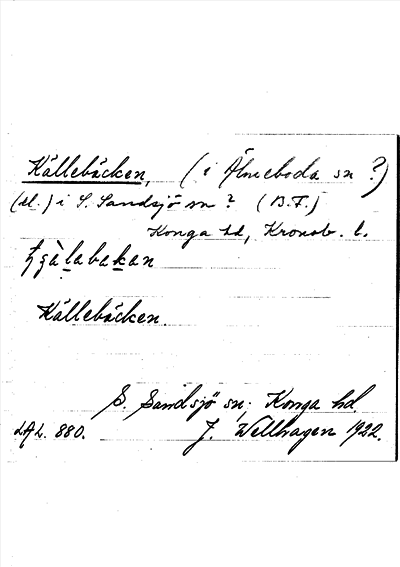 Källebäcken, (i Älmeboda sn ?)
(el.) i S. Sandsjö sn ? (B.F.)
Konga hd, Kronob. l.
Källebäcken.
S. Sandsjö sn, Konga hd.
LAL. 880. J. Wellhagen 1922.